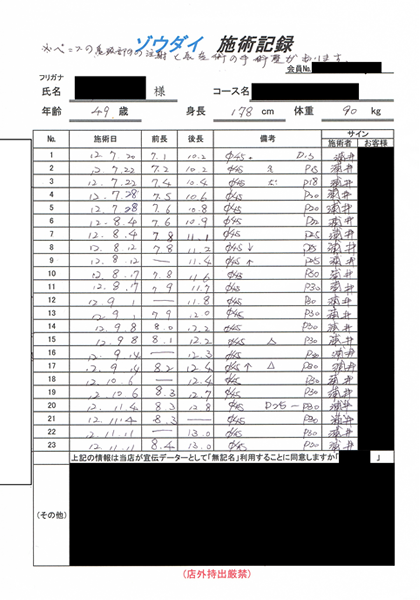 ゾウダイ 施術記録
※ペニスの亀頭部分の注射と長茎術の手術歴があります。
会員No.
フリガナ
氏名 様 コース名
年齢 49 歳 身長 178 cm 体重 90 kg
No. 施術日 前長 後長 備考 サイン
施術者 お客様
1 12.7.20 7.1 10.2 φ45 P15
2 12.7.22 7.2 10.2 φ45 P15
3 12.7.22 7.4 10.4 φ45 P18
4 12.7.28 7.5 10.6 φ45 P20
5 12.7.28 7.6 10.8 φ45 P20
6 12.8.4 7.6 10.9 φ45
7 12.8.4 7.8 11.1 φ45 P25
8 12.8.12 7.8 11.2 φ45 ↓ P25
9 12.8.12 — 11.4 φ45 ↑ P25
10 12.8.17 7.8 11.6 φ45 P30
11 12.8.17 7.9 11.7 φ45 P30
12 12.9.1 — 11.8 φ45 P30
13 12.9.1 7.9 12.0 φ45 P30
14 12.9.8 8.0 12.2 φ45 P30
15 12.9.8 8.1 12.2 φ45 △ P30
16 12.9.14 — 12.3 φ45 P30
17 12.9.14 8.2 12.4 φ45 ↑ △ P30
18 12.10.6 — 12.4 φ45 P30
19 12.10.6 8.3 12.7 φ45 P30
20 12.11.4 8.3 12.8 φ45 P25 — P30
21 12.11.4 8.3 — φ45 P30
22 12.11.11 — 13.0 φ45 P30
23 12.11.11 8.4 13.0 φ45 P30
上記の情報は当店が宣伝データーとして「無記名」利用することに同意しますか「 」
(その他)
(店外持出厳禁)